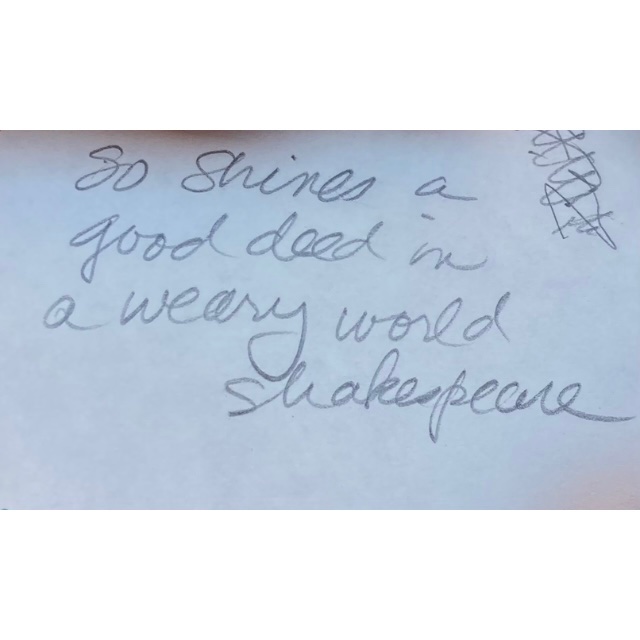 So shines a
good deed in
a weary world
Shakespeare